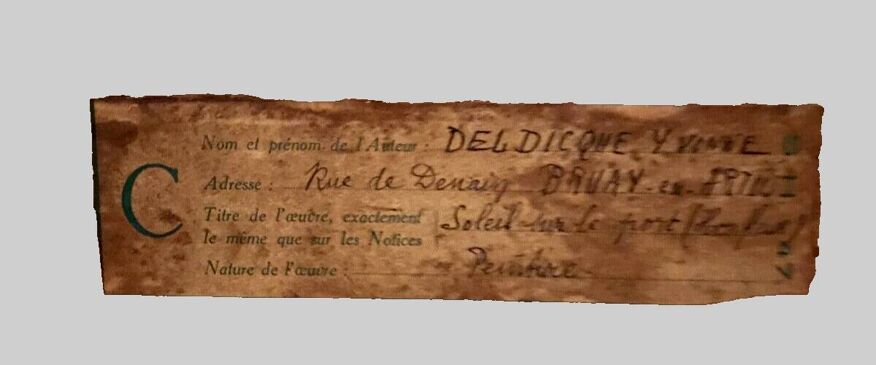 C
Nom et prénom de l'Auteur : DELDICQUE Yvonne
Adresse : Rue de Denain BRUAY-en-ARTOIS
Titre de l'œuvre, exactement Soleil sur le port (Honfleur)
le même que sur les Notices
Nature de l'œuvre : Peinture